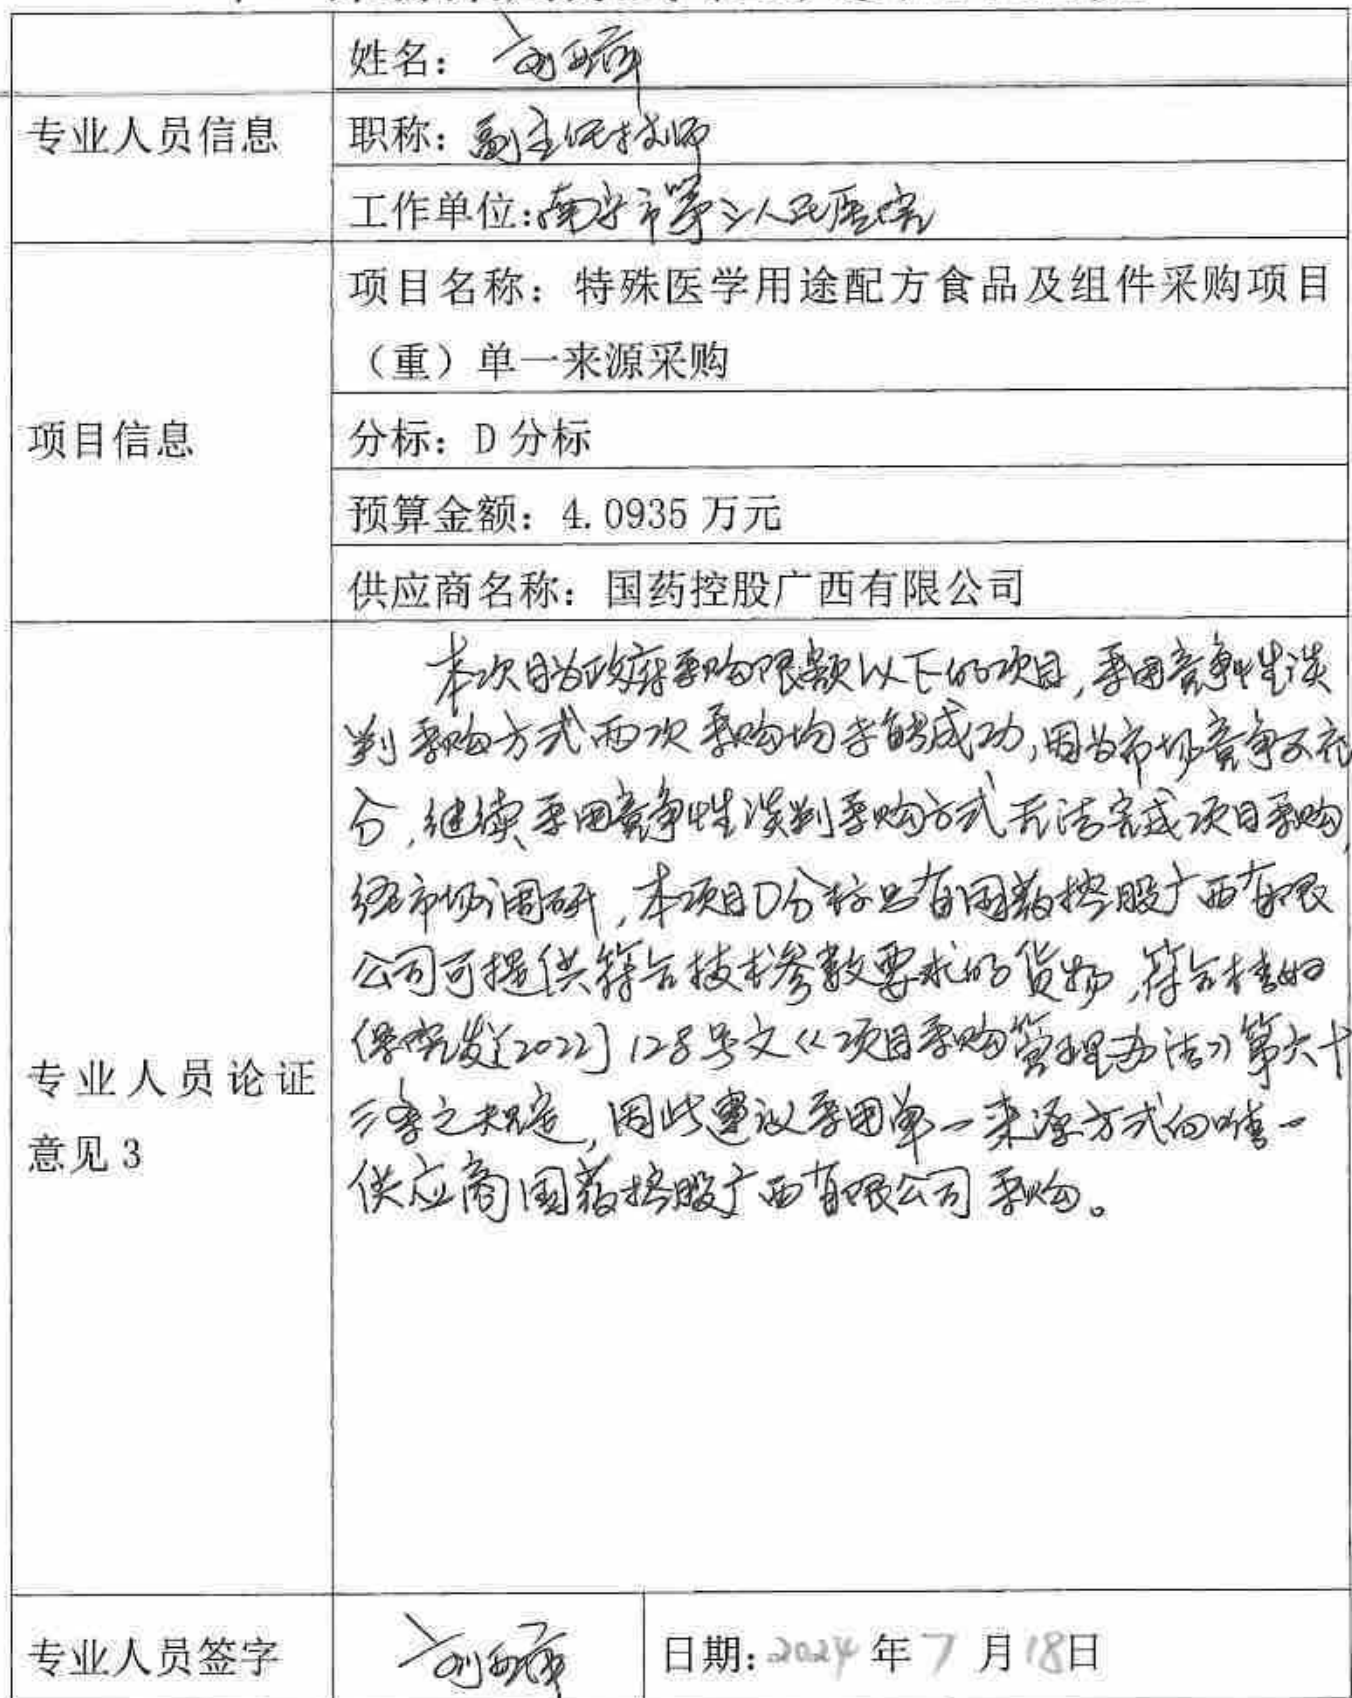 姓名：刘
专业人员信息
职称：副主任技师
工作单位：南宁市第三人民医院
项目名称：特殊医学用途配方食品及组件采购项目
（重）单一来源采购
项目信息
分标：D 分标
预算金额：4.0935 万元
供应商名称：国药控股广西有限公司
本次目为政府采购限额以下的项目，采用竞争性谈
判采购方式两次采购均未能成功，因为市场竞争不充
分，继续采用竞争性谈判采购方式无法完成项目采购，
经市场调研，本项目D分标只有国药控股广西有限
公司可提供符合技术参数要求的货物，符合桂妇
保院发[2022] 128号文《项目采购管理办法》第六十
三条之规定，因此建议采用单一来源方式向唯一
供应商国药控股广西有限公司采购。
专业人员论证
意见 3
专业人员签字
刘
日期：2024 年 7 月 18日